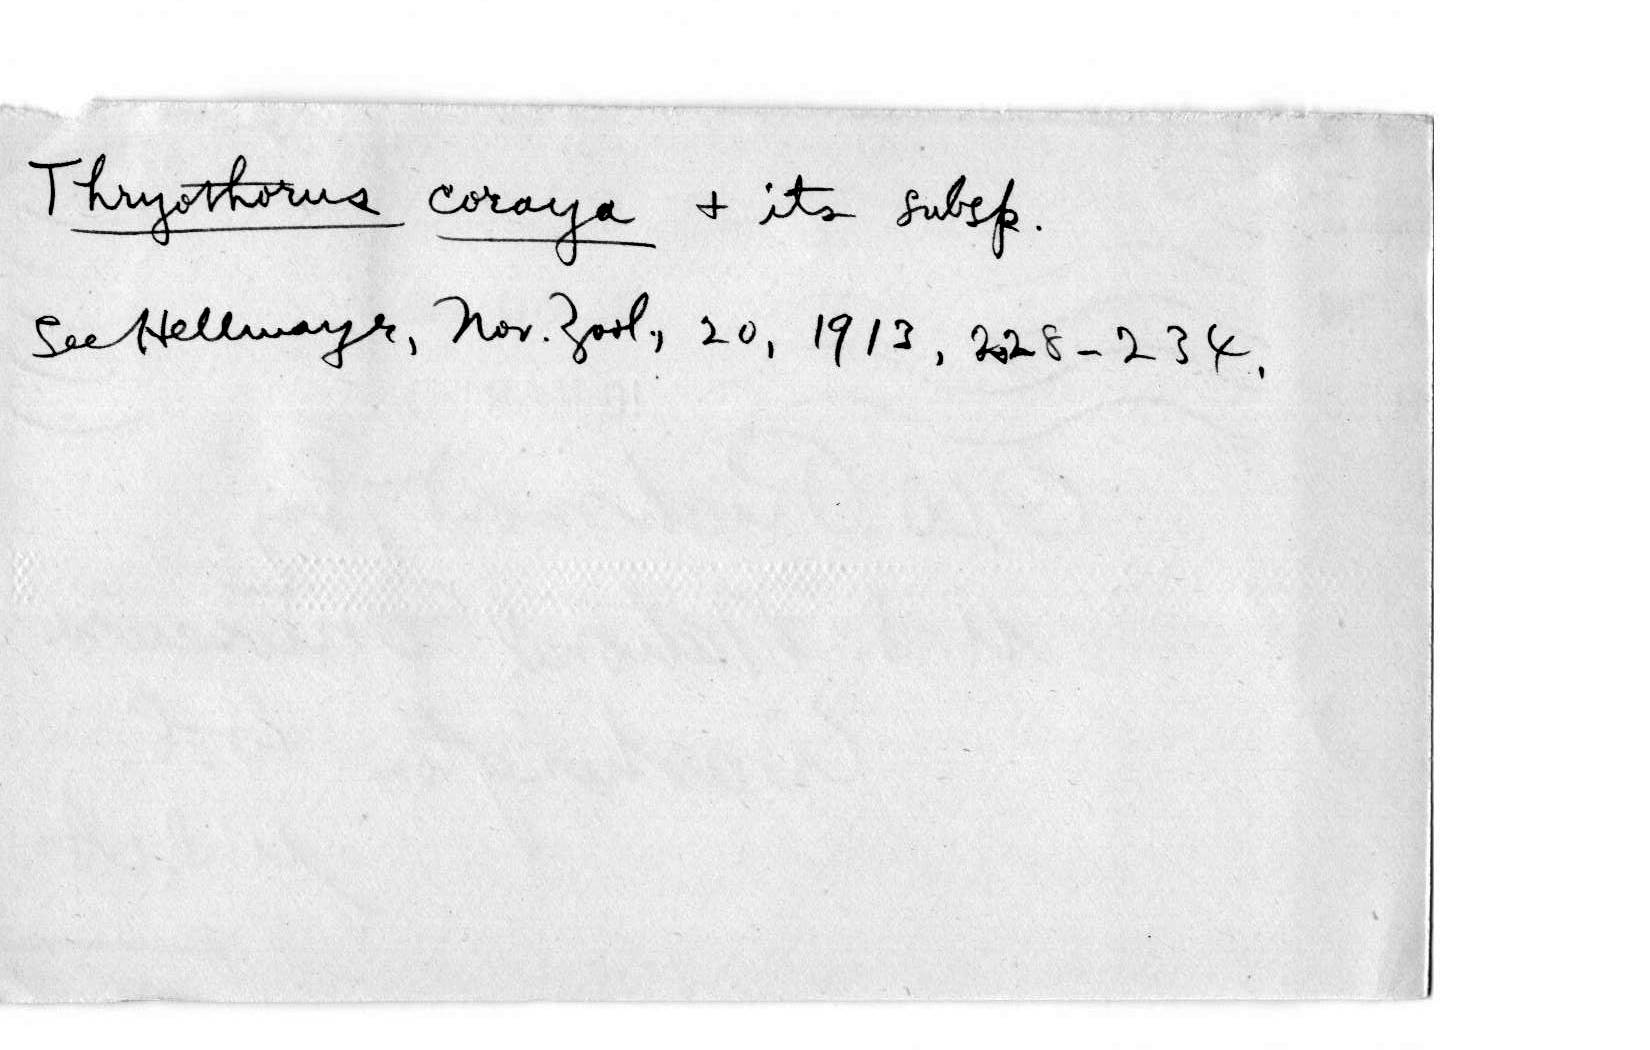 Thryothorus coraya + its subsp.
See Hellmayr, Nov. Zool., 20, 1913, 228-234.